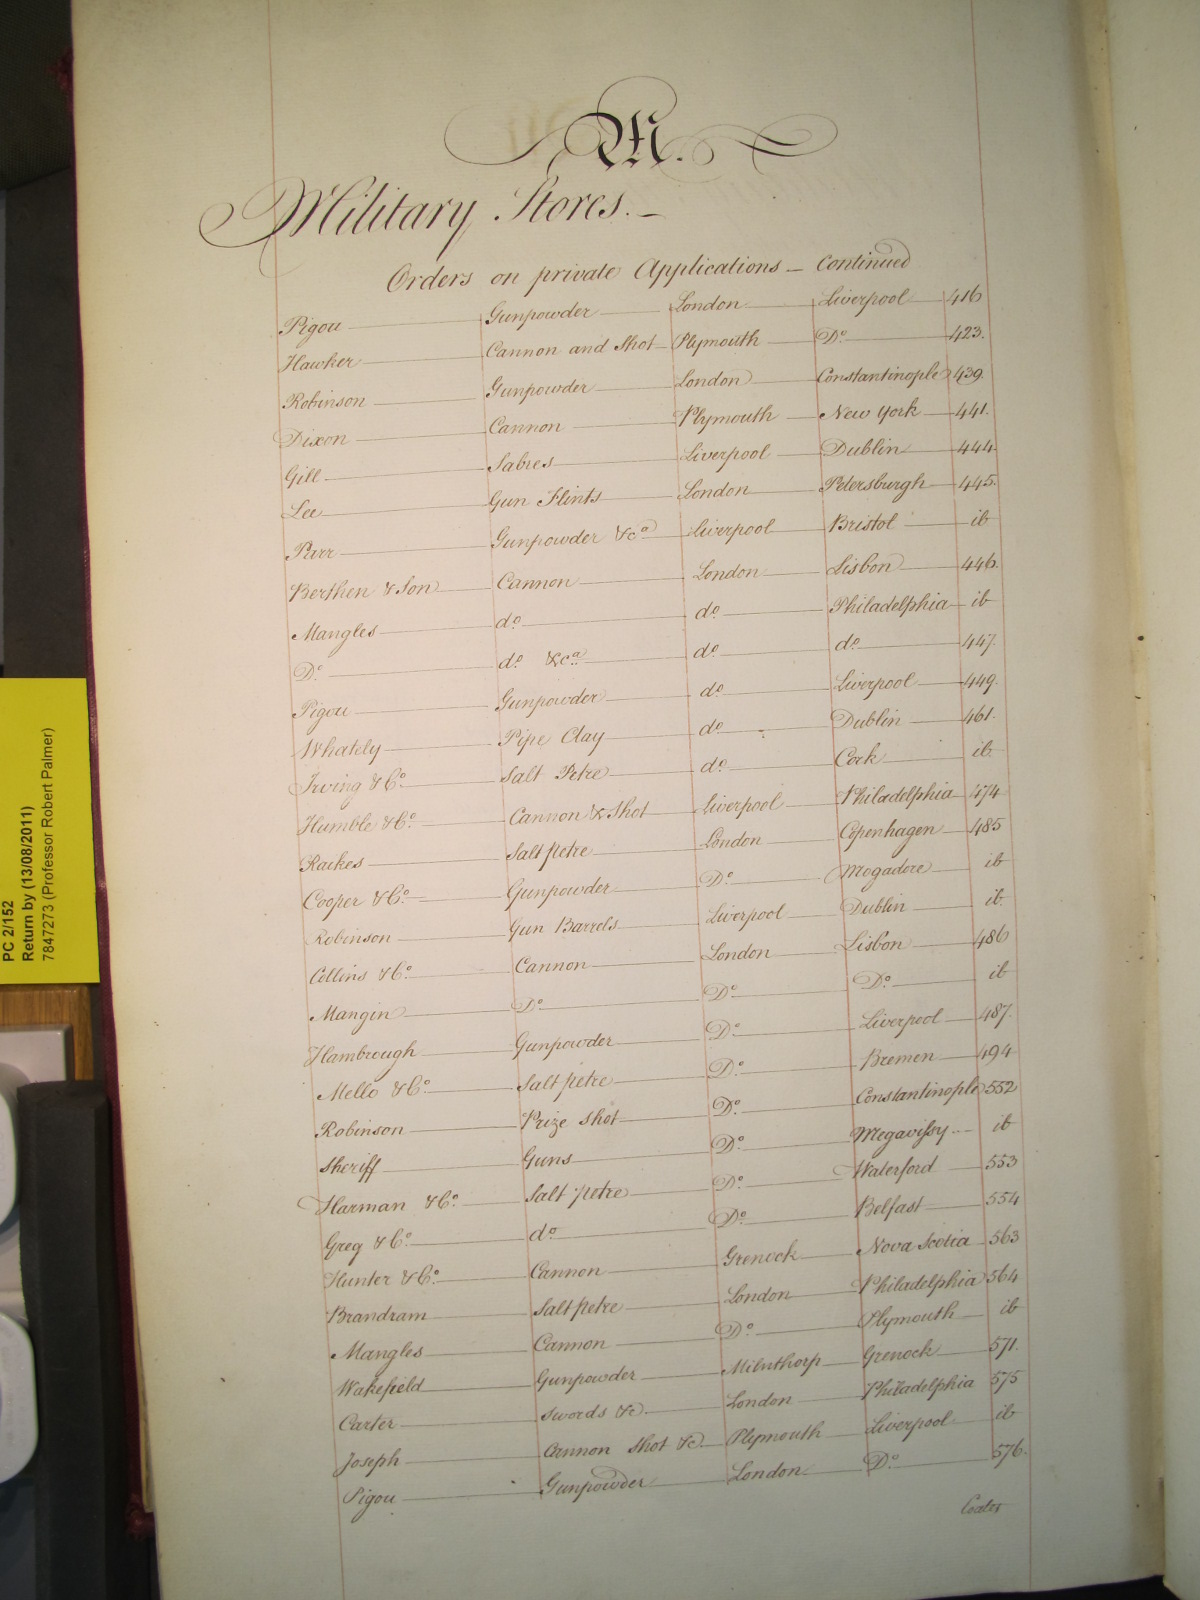 M.
Military Stores.
Orders on private Applications — Continued
Pigou Gunpowder London Liverpool 416
Hawker Cannon and Shot Plymouth Do. 423.
Robinson Gunpowder London Constantinople 439.
Dixon Cannon Plymouth New York 441.
Gill Sabres Liverpool Dublin 444.
Lee Gun Flints London Petersburgh 445.
Parr Gunpowder &ca Liverpool Bristol ib
Berthen & Son Cannon London Lisbon 446.
Mangles do. do. Philadelphia ib
Do. do. &ca. do. do. 447.
Pigou Gunpowder do. Liverpool 449.
Whately Pipe Clay do. Dublin 461.
Irving & Co. Salt Petre do. Cork ib.
Humble & Co. Cannon & Shot Liverpool Philadelphia 474
Raikes Salt petre London Copenhagen 485
Cooper & Co. Gunpowder Do. Mogadore ib
Robinson Gun Barrels Liverpool Dublin ib.
Collins & Co. Cannon London Lisbon 486
Mangin Do. Do. Do. ib
Hambrough Gunpowder Do. Liverpool 487.
Mello & Co. Salt petre Do. Bremen 494
Robinson Prize Shot Do. Constantinople 552
Sheriff Guns Do. Megavissy ib
Harman & Co. Salt petre Do. Waterford 553
Greg & Co. do. Do. Belfast 554
Hunter & Co. Cannon Grenock Nova Scotia 563
Brandram Salt petre London Philadelphia 564
Mangles Cannon Do. Plymouth ib
Wakefield Gunpowder Milnthorp Grenock 571.
Carter Swords &c London Philadelphia 575
Joseph Cannon Shot &c Plymouth Liverpool ib
Pigou Gunpowder London Do. 576.
Coates
PC 2/152
Return by (13/08/2011)
7847273 (Professor Robert Palmer)